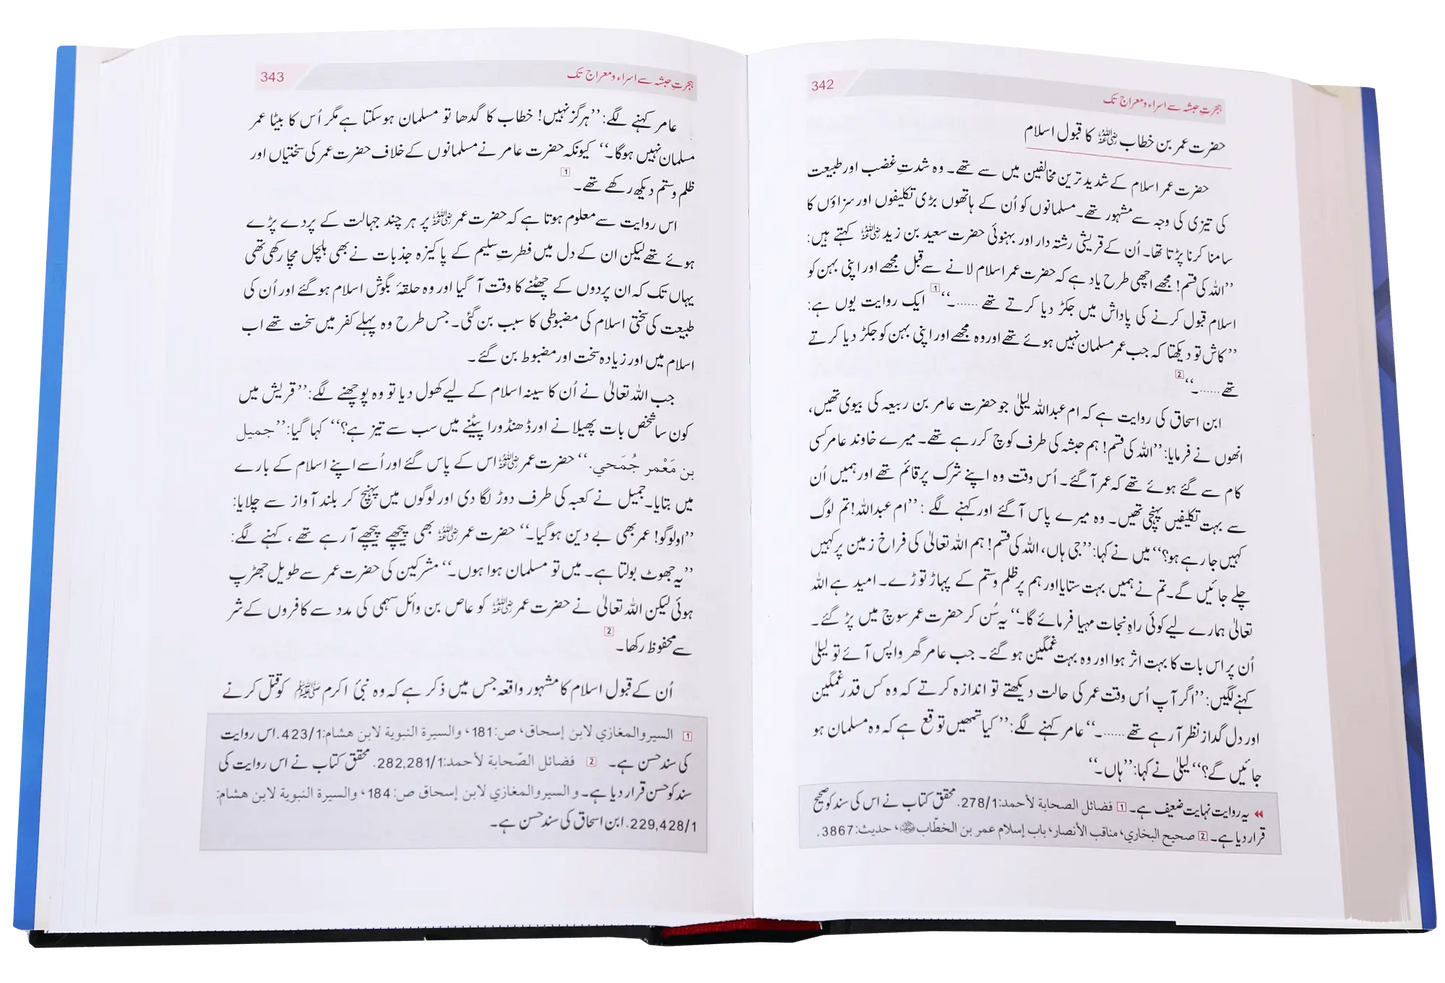 342
ہجرتِ حبشہ سے اسراء و معراج تک
حضرت عمر بن خطاب رضی اللہ عنہ کا قبول اسلام
حضرت عمر اسلام کے شدید ترین مخالفین میں سے تھے۔ وہ شدتِ غضب اور طبیعت
کی تیزی کی وجہ سے مشہور تھے۔ مسلمانوں کو اُن کے ہاتھوں بڑی تکلیفوں اور سزاؤں کا
سامنا کرنا پڑتا تھا۔ اُن کے قریشی رشتہ دار اور بہنوئی حضرت سعید بن زید رضی اللہ عنہ کہتے ہیں:
’’اللہ کی قسم! مجھے اچھی طرح یاد ہے کہ حضرت عمر اسلام لانے سے قبل مجھے اور اپنی بہن کو
اسلام قبول کرنے کی پاداش میں جکڑ دیا کرتے تھے ......۔‘‘ 1 ایک روایت یوں ہے:
’’کاش تو دیکھتا کہ جب عمر مسلمان نہیں ہوئے تھے اور وہ مجھے اور اپنی بہن کو جکڑ دیا کرتے
تھے ......۔‘‘ 2
ابن اسحاق کی روایت ہے کہ ام عبداللہ لیلیٰ جو حضرت عامر بن ربیعہ کی بیوی تھیں،
انھوں نے فرمایا: ’’اللہ کی قسم! ہم حبشہ کی طرف کوچ کر رہے تھے۔ میرے خاوند عامر کسی
کام سے گئے ہوئے تھے کہ عمر آگئے۔ اُس وقت وہ اپنے شرک پر قائم تھے اور ہمیں اُن
سے بہت تکلیفیں پہنچی تھیں۔ وہ میرے پاس آگئے اور کہنے لگے: ’’ام عبداللہ! تم لوگ
کہیں جا رہے ہو؟‘‘ میں نے کہا: ’’جی ہاں، اللہ کی قسم! ہم اللہ تعالیٰ کی فراخ زمین پر کہیں
چلے جائیں گے۔ تم نے ہمیں بہت ستایا اور ہم پر ظلم وستم کے پہاڑ توڑے۔ امید ہے اللہ
تعالیٰ ہمارے لیے کوئی راہِ نجات مہیا فرمائے گا۔‘‘ یہ سُن کر حضرت عمر سوچ میں پڑ گئے۔
اُن پر اس بات کا بہت اثر ہوا اور وہ بہت غمگین ہو گئے۔ جب عامر گھر واپس آئے تو لیلیٰ
کہنے لگیں: ’’اگر آپ اُس وقت عمر کی حالت دیکھتے تو اندازہ کرتے کہ وہ کس قدر غمگین
اور دل گداز نظر آ رہے تھے ......۔‘‘ عامر کہنے لگے: ’’کیا تمھیں توقع ہے کہ وہ مسلمان ہو
جائیں گے؟‘‘ لیلیٰ نے کہا: ’’ہاں۔‘‘
یہ روایت نہایت ضعیف ہے۔ 1 فضائل الصحابة لأحمد: 278/1. محقق کتاب نے اس کی سند کو صحیح
قرار دیا ہے۔ 2 صحيح البخاري، مناقب الأنصار، باب إسلام عمر بن الخطّاب رضی اللہ عنہ، حدیث: 3867.
343
ہجرتِ حبشہ سے اسراء و معراج تک
عامر کہنے لگے: ’’ہرگز نہیں! خطاب کا گدھا تو مسلمان ہو سکتا ہے مگر اُس کا بیٹا عمر
مسلمان نہیں ہوگا۔‘‘ کیونکہ حضرت عامر نے مسلمانوں کے خلاف حضرت عمر کی سختیاں اور
ظلم وستم دیکھ رکھے تھے۔ 1
اس روایت سے معلوم ہوتا ہے کہ حضرت عمر رضی اللہ عنہ پر ہر چند جہالت کے پردے پڑے
ہوئے تھے لیکن ان کے دل میں فطرتِ سلیم کے پاکیزہ جذبات نے بھی ہلچل مچا رکھی تھی
یہاں تک کہ ان پردوں کے چھٹنے کا وقت آ گیا اور وہ حلقہ بگوش اسلام ہوگئے اور اُن کی
طبیعت کی سختی اسلام کی مضبوطی کا سبب بن گئی۔ جس طرح وہ پہلے کفر میں سخت تھے اب
اسلام میں اور زیادہ سخت اور مضبوط بن گئے۔
جب اللہ تعالیٰ نے اُن کا سینہ اسلام کے لیے کھول دیا تو وہ پوچھنے لگے: ’’قریش میں
کون سا شخص بات پھیلانے اور ڈھنڈورا پیٹنے میں سب سے تیز ہے؟‘‘ کہا گیا: ’’جميل
بن مَعْمر جُمَحي.‘‘ حضرت عمر رضی اللہ عنہ اس کے پاس گئے اور اُسے اپنے اسلام کے بارے
میں بتایا۔ جمیل نے کعبہ کی طرف دوڑ لگا دی اور لوگوں میں پہنچ کر بلند آواز سے چلایا:
’’او لوگو! عمر بھی بے دین ہو گیا۔‘‘ حضرت عمر رضی اللہ عنہ بھی پیچھے پیچھے آ رہے تھے، کہنے لگے:
’’یہ جھوٹ بولتا ہے۔ میں تو مسلمان ہوا ہوں۔‘‘ مشرکین کی حضرت عمر سے طویل جھڑپ
ہوئی لیکن اللہ تعالیٰ نے حضرت عمر رضی اللہ عنہ کو عاص بن وائل سہمی کی مدد سے کافروں کے شر
سے محفوظ رکھا۔ 2
اُن کے قبول اسلام کا مشہور واقعہ جس میں ذکر ہے کہ وہ نبیٔ اکرم ﷺ کو قتل کرنے
1 السير والمغازي لابن إسحاق، ص: 181، والسيرة النبوية لابن هشام: 423/1. اس روایت
کی سند حسن ہے۔ 2 فضائل الصّحابة لأحمد: 282,281/1. محقق کتاب نے اس روایت کی
سند کو حسن قرار دیا ہے۔ والسير والمغازي لابن إسحاق ص: 184، والسيرة النبوية لابن هشام:
229,428/1. ابن اسحاق کی سند حسن ہے۔